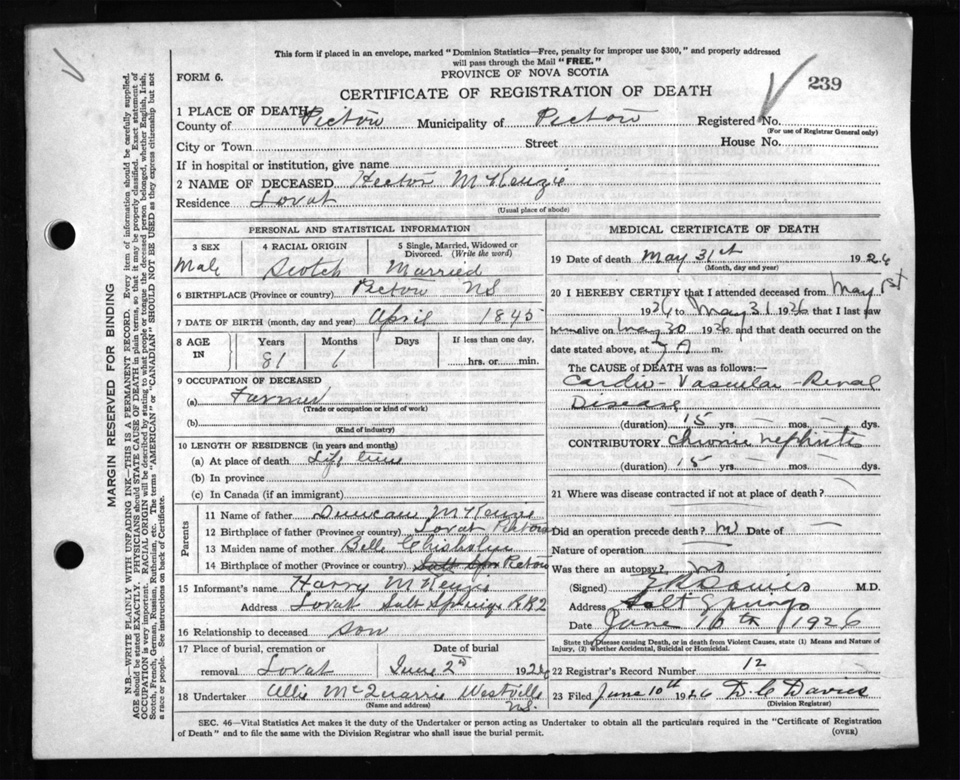 This form if placed in an envelope, marked "Dominion Statistics—Free, penalty for improper use $300," and properly addressed
will pass through the Mail "FREE."
PROVINCE OF NOVA SCOTIA
FORM 6.
CERTIFICATE OF REGISTRATION OF DEATH
239
1 PLACE OF DEATH
County of Pictou Municipality of Pictou Registered No.
(For use of Registrar General only)
City or Town Street House No.
If in hospital or institution, give name
2 NAME OF DECEASED Hector McKenzie
Residence Lovat
(Usual place of abode)
PERSONAL AND STATISTICAL INFORMATION
3 SEX 4 RACIAL ORIGIN 5 Single, Married, Widowed or
Divorced. (Write the word)
Male Scotch Married
6 BIRTHPLACE (Province or country) Pictou NS
7 DATE OF BIRTH (month, day and year) April 1845
8 AGE IN Years Months Days If less than one day,
81 1 hrs. or min.
9 OCCUPATION OF DECEASED
(a) Farmer
(Trade or occupation or kind of work)
(b)
(Kind of industry)
10 LENGTH OF RESIDENCE (in years and months)
(a) At place of death Life time
(b) In province
(c) In Canada (if an immigrant)
Parents
11 Name of father Duncan McKenzie
12 Birthplace of father (Province or country) Lovat Pictou
13 Maiden name of mother Belle Chisholm
14 Birthplace of mother (Province or country) Pictou
15 Informant's name Harry McKenzie
Address Lovat Salt Springs RR2
16 Relationship to deceased son
17 Place of burial, cremation or Date of burial
removal Lovat June 2nd 1926
18 Undertaker Allie McQuarrie Westville
(Name and address) N.S.
MEDICAL CERTIFICATE OF DEATH
19 Date of death May 31st 1926
(Month, day and year)
20 I HEREBY CERTIFY that I attended deceased from May 1st
1926 to May 31 1926 that I last saw
him alive on May 30 1926 and that death occurred on the
date stated above, at 7 A m.
The CAUSE of DEATH was as follows:—
Cardio-Vascular-Renal
Disease
(duration) 15 yrs. — mos. — dys.
CONTRIBUTORY Chronic Nephritis
(duration) 15 yrs. — mos. — dys.
21 Where was disease contracted if not at place of death?
Did an operation precede death? no Date of —
Nature of operation —
Was there an autopsy? no
(Signed) M.D.
Address Salt Springs
Date June 10th 1926
State the Disease causing Death, or in death from Violent Causes, state (1) Means and Nature of
Injury, (2) whether Accidental, Suicidal or Homicidal.
22 Registrar's Record Number 12
23 Filed June 10th 1926 D. C. Davies
(Division Registrar)
SEC. 46—Vital Statistics Act makes it the duty of the Undertaker or person acting as Undertaker to obtain all the particulars required in the "Certificate of Registration
of Death" and to file the same with the Division Registrar who shall issue the burial permit.
(OVER)
MARGIN RESERVED FOR BINDING
N.B.—WRITE PLAINLY WITH UNFADING INK—THIS IS A PERMANENT RECORD. Every item of information should be carefully supplied.
AGE should be stated EXACTLY. PHYSICIANS should STATE CAUSE OF DEATH in plain terms, so that it may be properly classified. Exact statement of
OCCUPATION is very important. RACIAL ORIGIN will be described by stating to what people or tongue the deceased person belonged, whether English, Irish,
Scotch, French, German, Russian, Ruthenian, etc. The terms "AMERICAN" or "CANADIAN" SHOULD NOT BE USED as they express citizenship but not
a race or people. See instructions on back of Certificate.